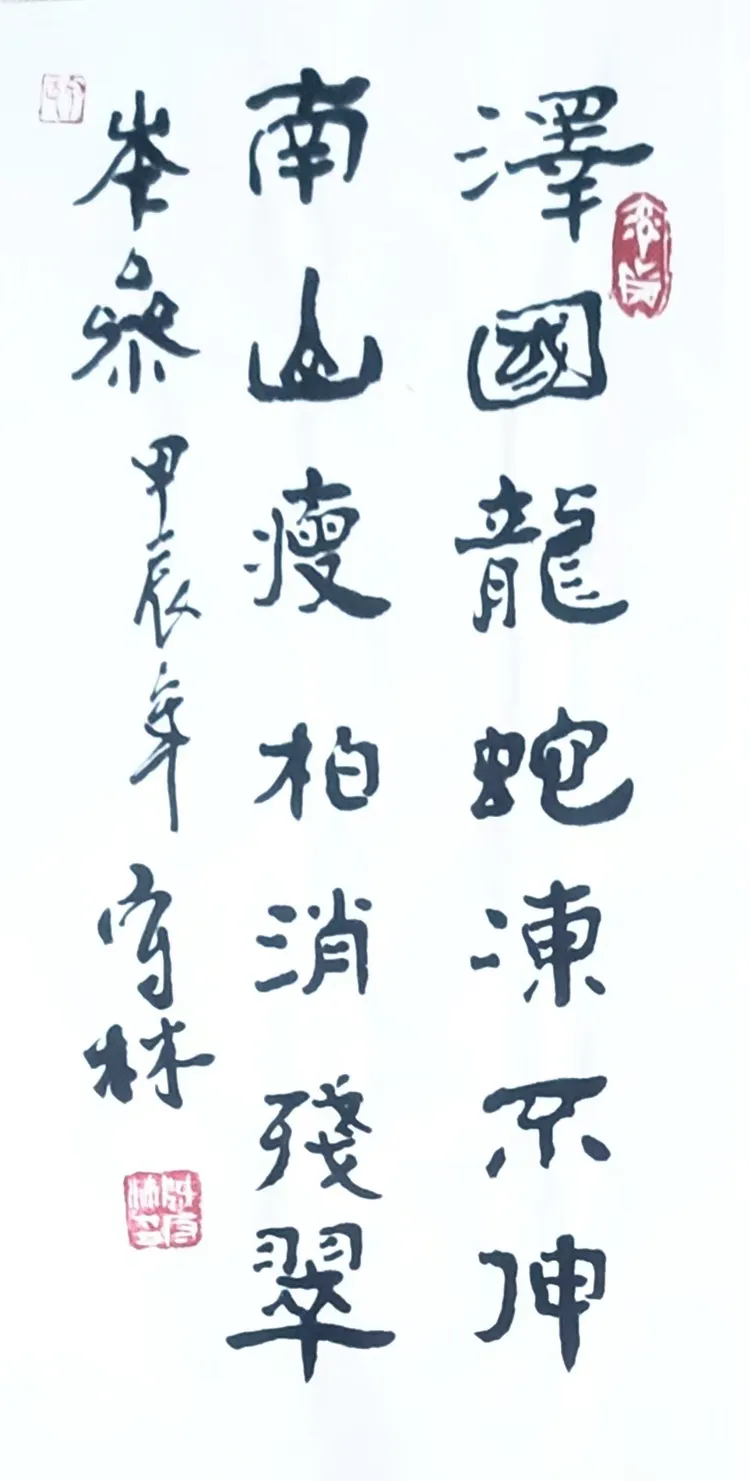 澤國龍蛇凍不伸
南山瘦柏消殘翠
岑參 甲辰年 守林